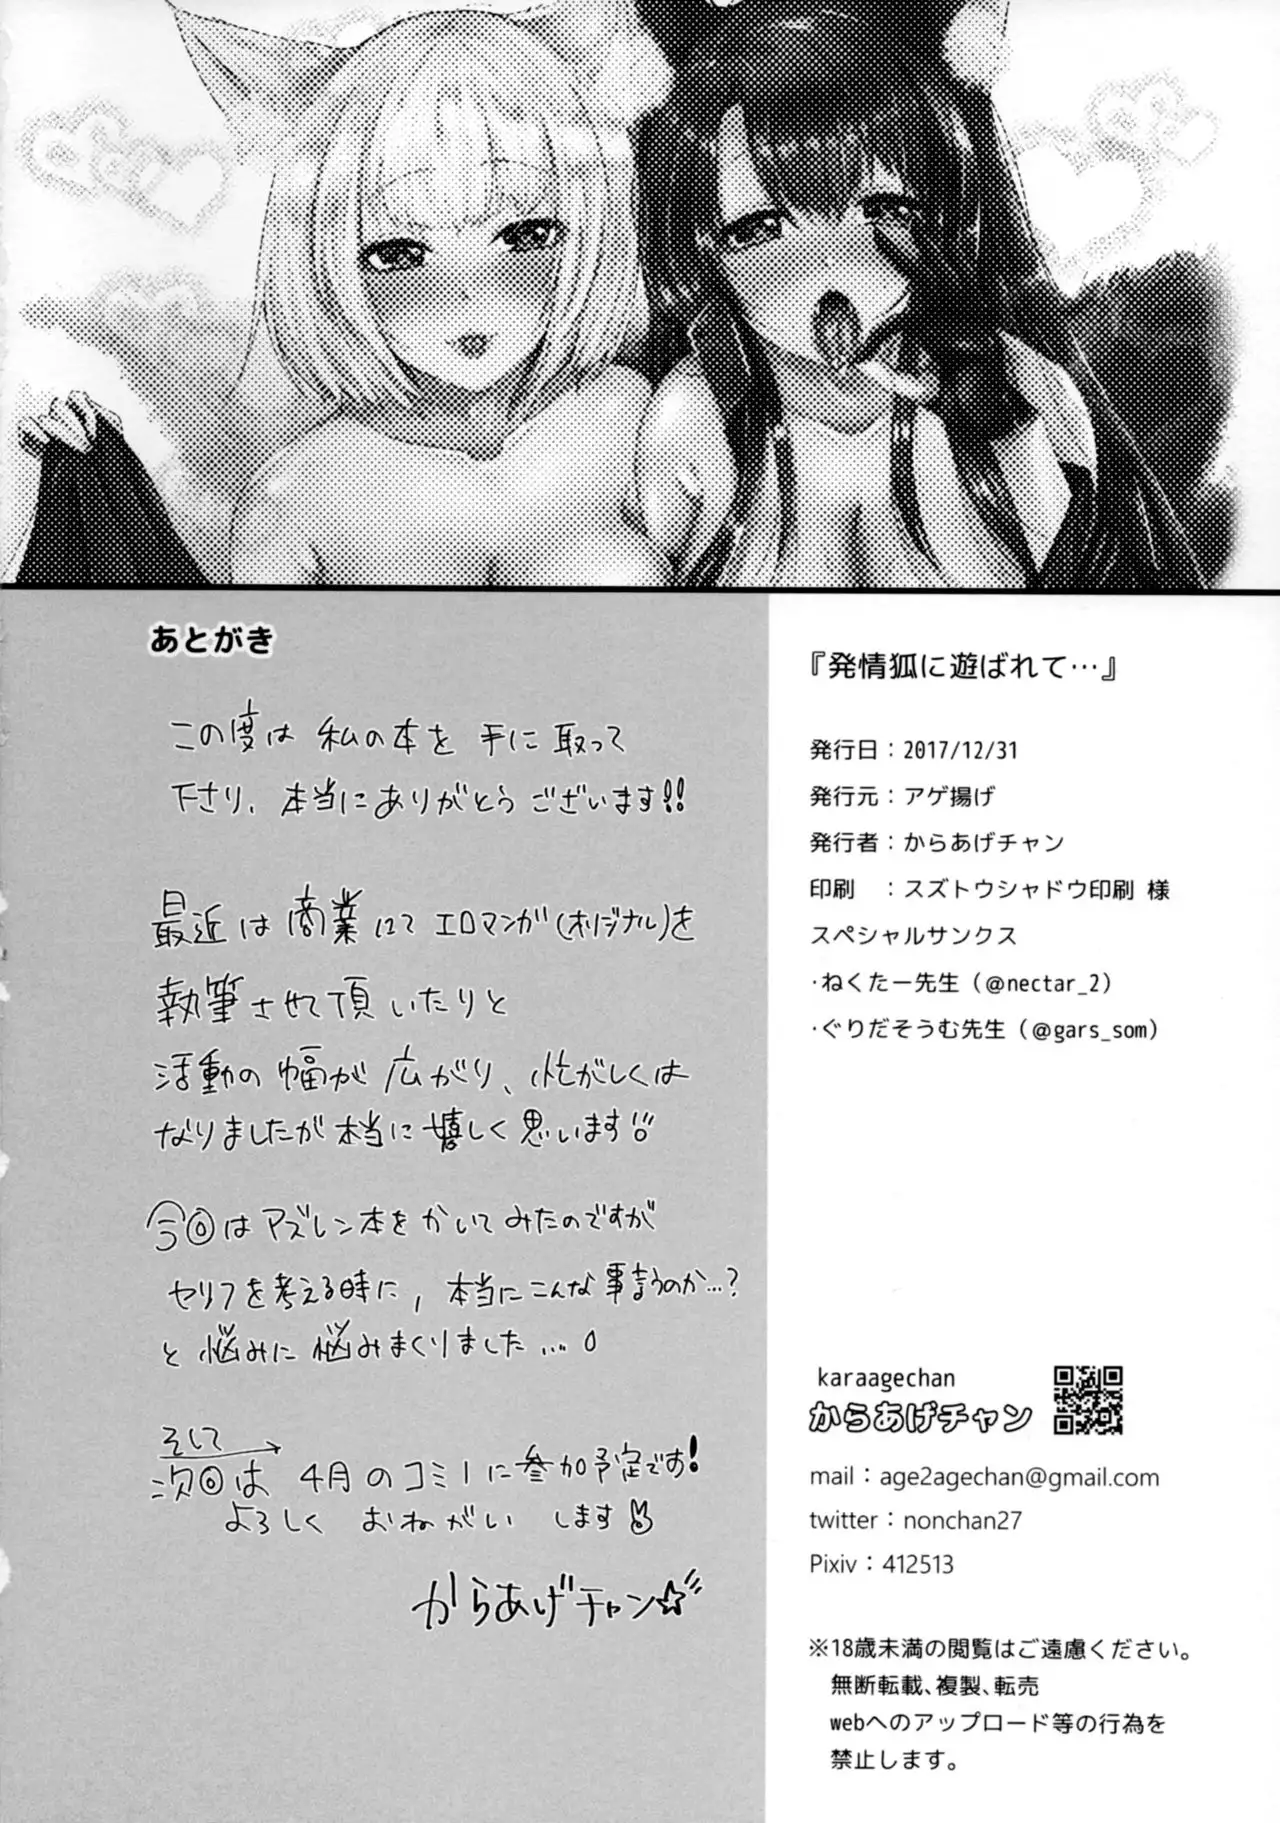 あとがき
この度は 私の本を 手に取って
下さり、本当にありがとうございます!!
最近は 商業にて エロマンガ(オリジナル)を
執筆させて頂いたりと
活動の 幅が 広がり、忙がしくは
なりましたが本当に嬉しく思います!!
今回はアズレン本をかいてみたのですが
セリフを考える時に, 本当にこんな事言うのか...?
と悩みに悩みまくりました...。
そして
次回は 4月のコミ1に参加予定です!
よろしく おねがい します
からあげチャン☆
『発情狐に遊ばれて…』
発行日：2017/12/31
発行元：アゲ揚げ
発行者：からあげチャン
印刷　：スズトウシャドウ印刷 様
スペシャルサンクス
・ねくたー先生（@nectar_2）
・ぐりだそうむ先生（@gars_som）
karaagechan
からあげチャン
mail：age2agechan@gmail.com
twitter：nonchan27
Pixiv：412513
※18歳未満の閲覧はご遠慮ください。
無断転載、複製、転売
webへのアップロード等の行為を
禁止します。